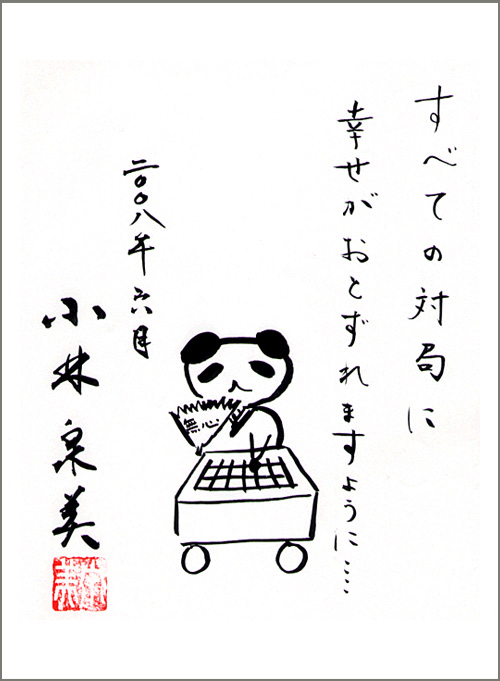 すべての対局に
幸せがおとずれますように…
無心
二〇〇八年六月
小林泉美